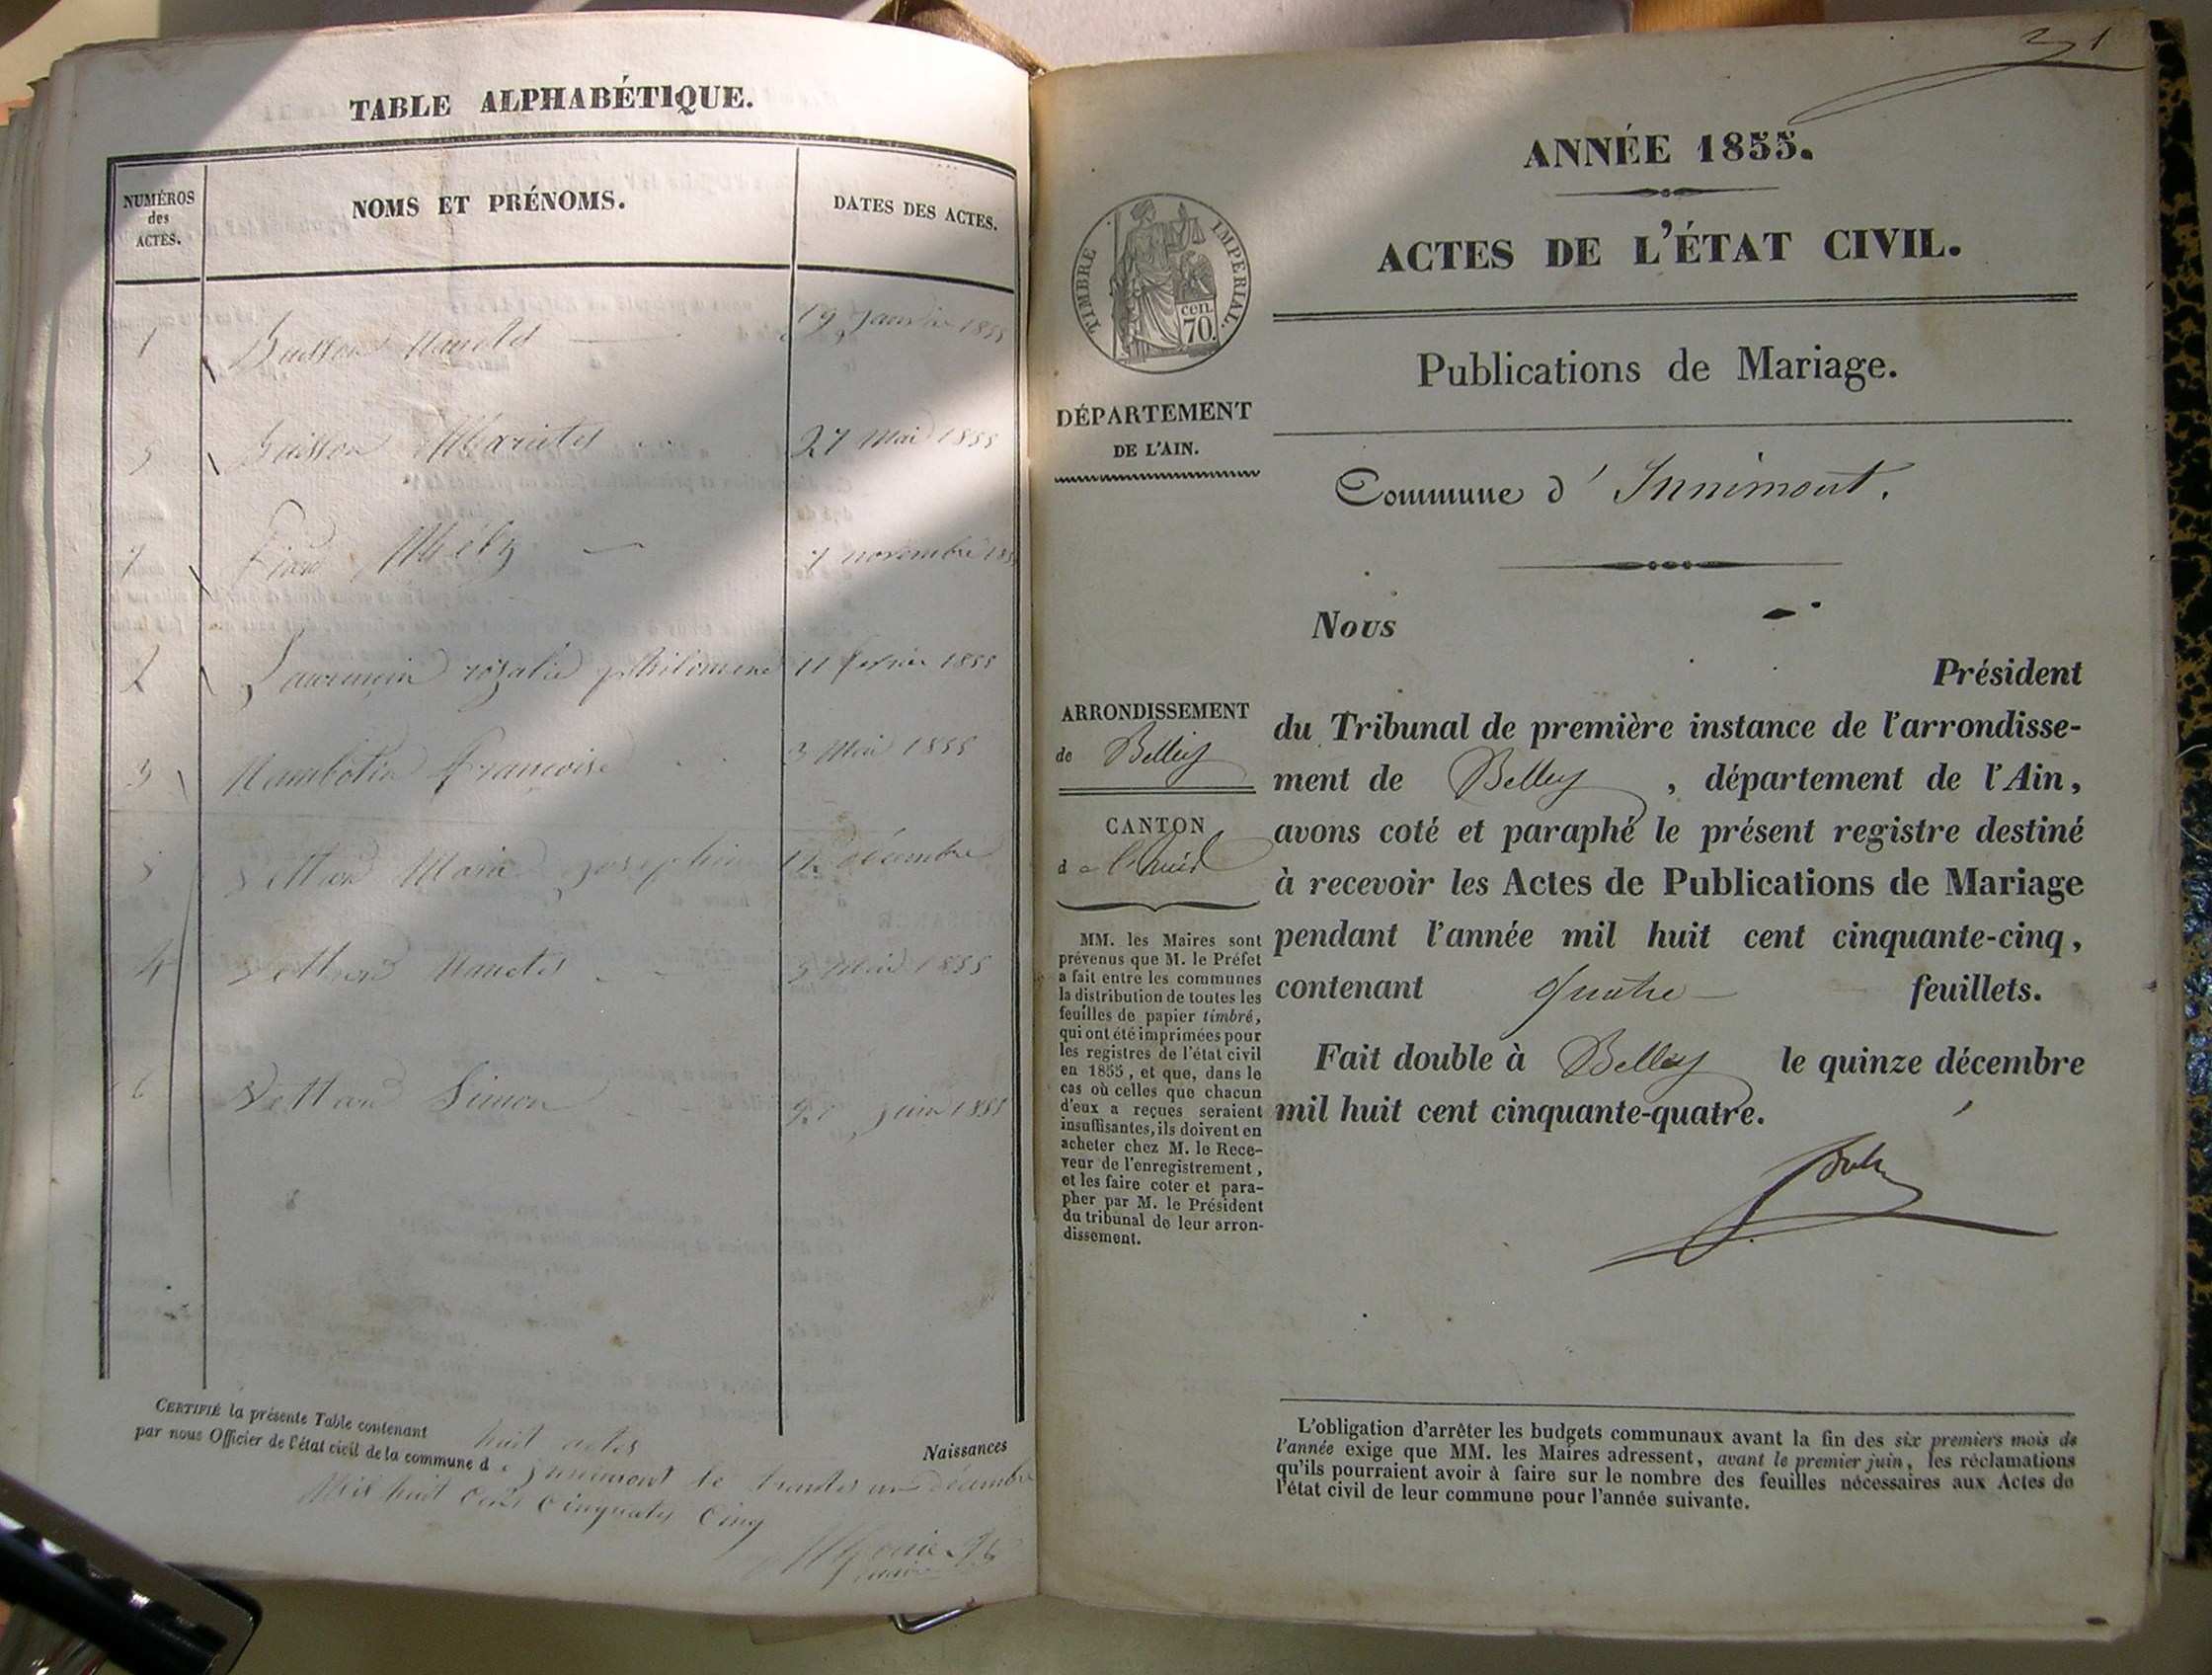 TABLE ALPHABÉTIQUE.
NUMÉROS
des
ACTES.
NOMS ET PRÉNOMS.
DATES DES ACTES.
1 Buisson 19 Janvier 1855
5 Buisson Mariette 27 Mai 1855
7 7 novembre 185
2 rozalie philomene 11 fevrier 1855
3 Françoise 3 Mai 1855
Marie Josephine 12 décembre
4 3 Mai 1855
6 Simon Juin 1855
CERTIFIÉ la présente Table contenant huit actes
Naissances
par nous Officier de l'état civil de la commune d Innimont le trente un Décembre
Mil huit cent Cinquante Cinq
31
ANNÉE 1855.
ACTES DE L'ÉTAT CIVIL.
Publications de Mariage.
TIMBRE IMPERIAL.
cen.
70.
DÉPARTEMENT
DE L'AIN.
Commune d'Innimont.
ARRONDISSEMENT
de Belley
CANTON
MM. les Maires sont
prévenus que M. le Préfet
a fait entre les communes
la distribution de toutes les
feuilles de papier timbré,
qui ont été imprimées pour
les registres de l'état civil
en 1855, et que, dans le
cas où celles que chacun
d'eux a reçues seraient
insuffisantes, ils doivent en
acheter chez M. le Rece-
veur de l'enregistrement,
et les faire coter et para-
pher par M. le Président
du tribunal de leur arron-
dissement.
Nous
Président
du Tribunal de première instance de l'arrondisse-
ment de Belley, département de l'Ain,
avons coté et paraphé le présent registre destiné
à recevoir les Actes de Publications de Mariage
pendant l'année mil huit cent cinquante-cinq,
contenant quatre feuillets.
Fait double à Belley le quinze décembre
mil huit cent cinquante-quatre.
L'obligation d'arrêter les budgets communaux avant la fin des six premiers mois de
l'année exige que MM. les Maires adressent, avant le premier juin, les réclamations
qu'ils pourraient avoir à faire sur le nombre des feuilles nécessaires aux Actes de
l'état civil de leur commune pour l'année suivante.